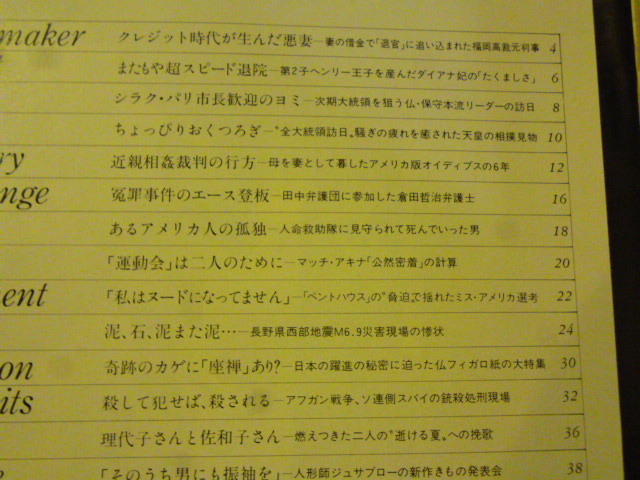 maker クレジット時代が生んだ悪妻—妻の借金で「退官」に追い込まれた福岡高裁元判事 4
またもや超スピード退院—第2子ヘンリー王子を産んだダイアナ妃の「たくましさ」 6
シラク・パリ市長歓迎のヨミ—次期大統領を狙う仏・保守本流リーダーの訪日 8
ちょっぴりおくつろぎ—"全大統領訪日〟騒ぎの疲れを癒された天皇の相撲見物 10
ry 近親相姦裁判の行方—母を妻として暮したアメリカ版オイディプスの6年 12
nge 冤罪事件のエース登板—田中弁護団に参加した倉田哲治弁護士 16
あるアメリカ人の孤独—人命救助隊に見守られて死んでいった男 18
「運動会」は二人のために—マッチ・アキナ「公然密着」の計算 20
ent 「私はヌードになってません」—「ペントハウス」の〝脅迫〟で揺れたミス・アメリカ選考 22
泥、石、泥また泥…—長野県西部地震M6.9災害現場の惨状 24
on 奇跡のカゲに「座禅」あり?—日本の躍進の秘密に迫った仏フィガロ紙の大特集 30
its 殺して犯せば、殺される—アフガン戦争、ソ連側スパイの銃殺処刑現場 32
理代子さんと佐和子さん—燃えつきた二人の〝逝ける夏〟への挽歌 36
「そのうち男にも振袖を」—人形師ジュサブローの新作きもの発表会 38